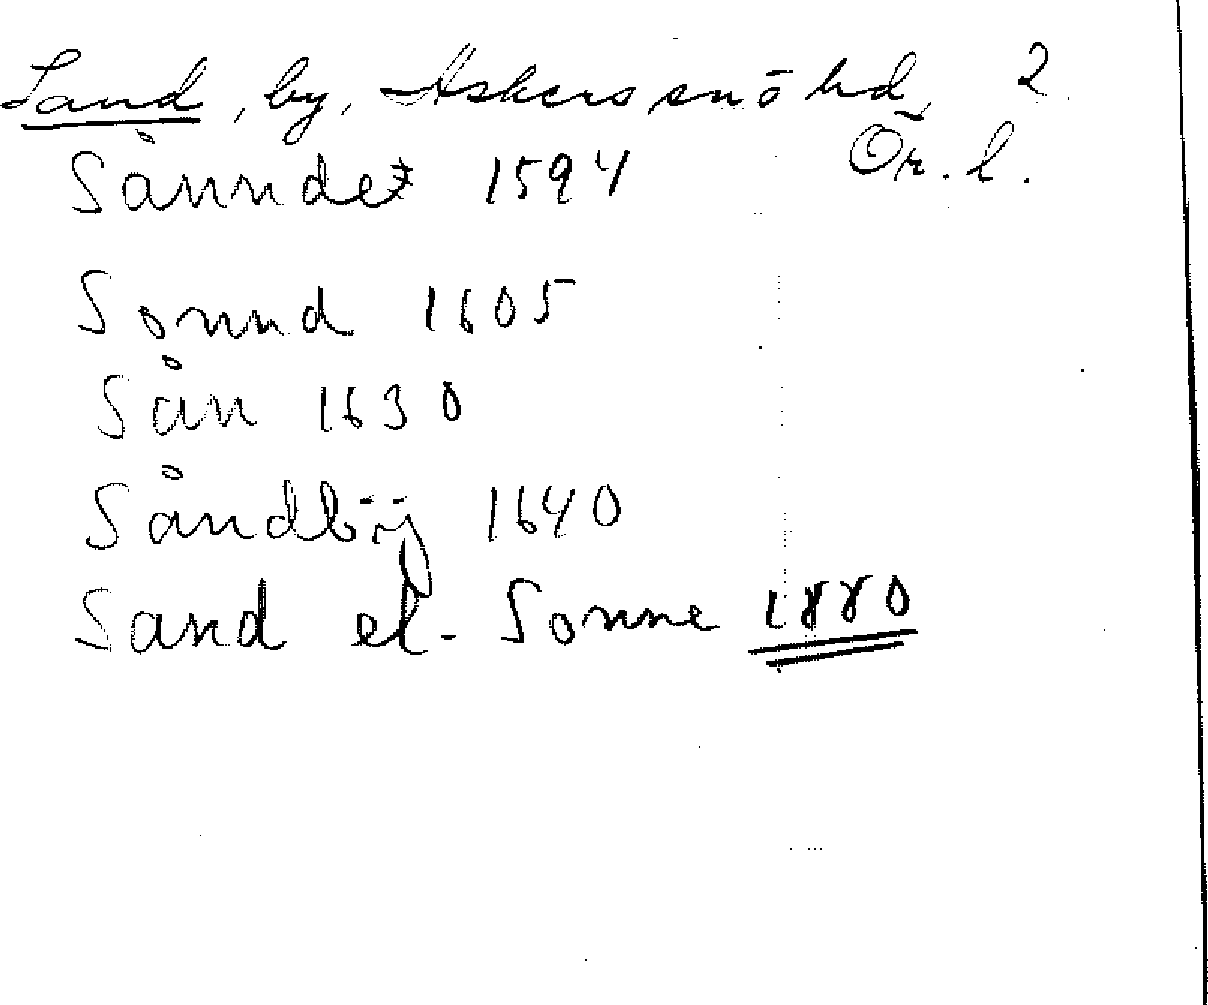 Sand, by, Askers sn o hd, 2
Ör. l.
Sånndet 1594
Sonnd 1605
Sån 1630
Såndbÿ 1640
Sand el. Sonne 1880